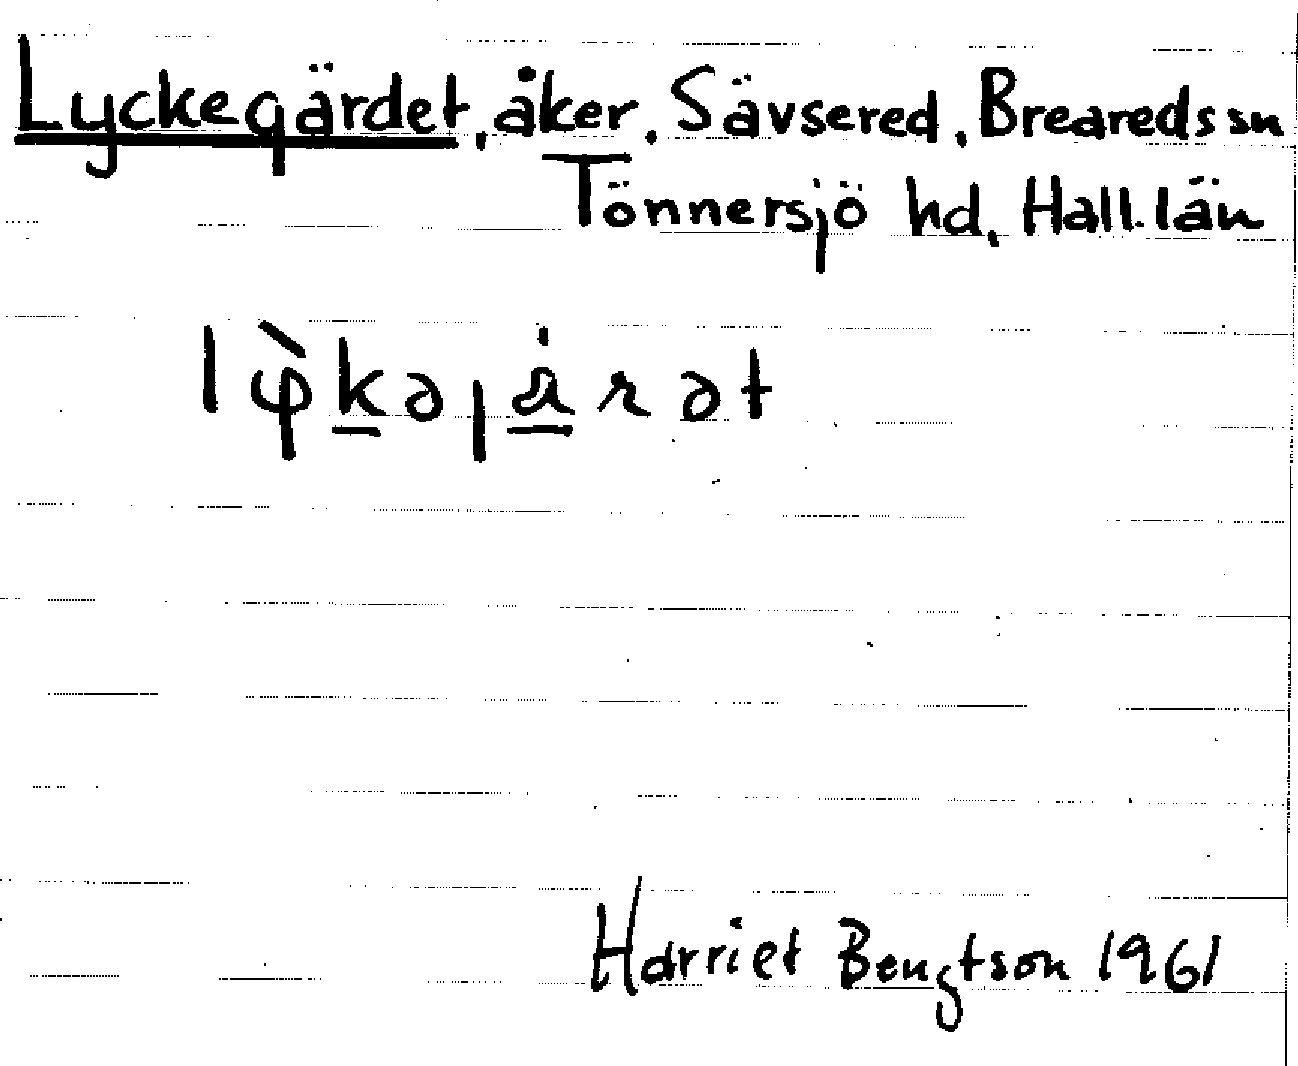 Lyckegärdet, åker, Sävsered, Breareds sn
Tönnersjö hd, Hall. län
lφ̀kəȷȧrət
Harriet Bengtson 1961